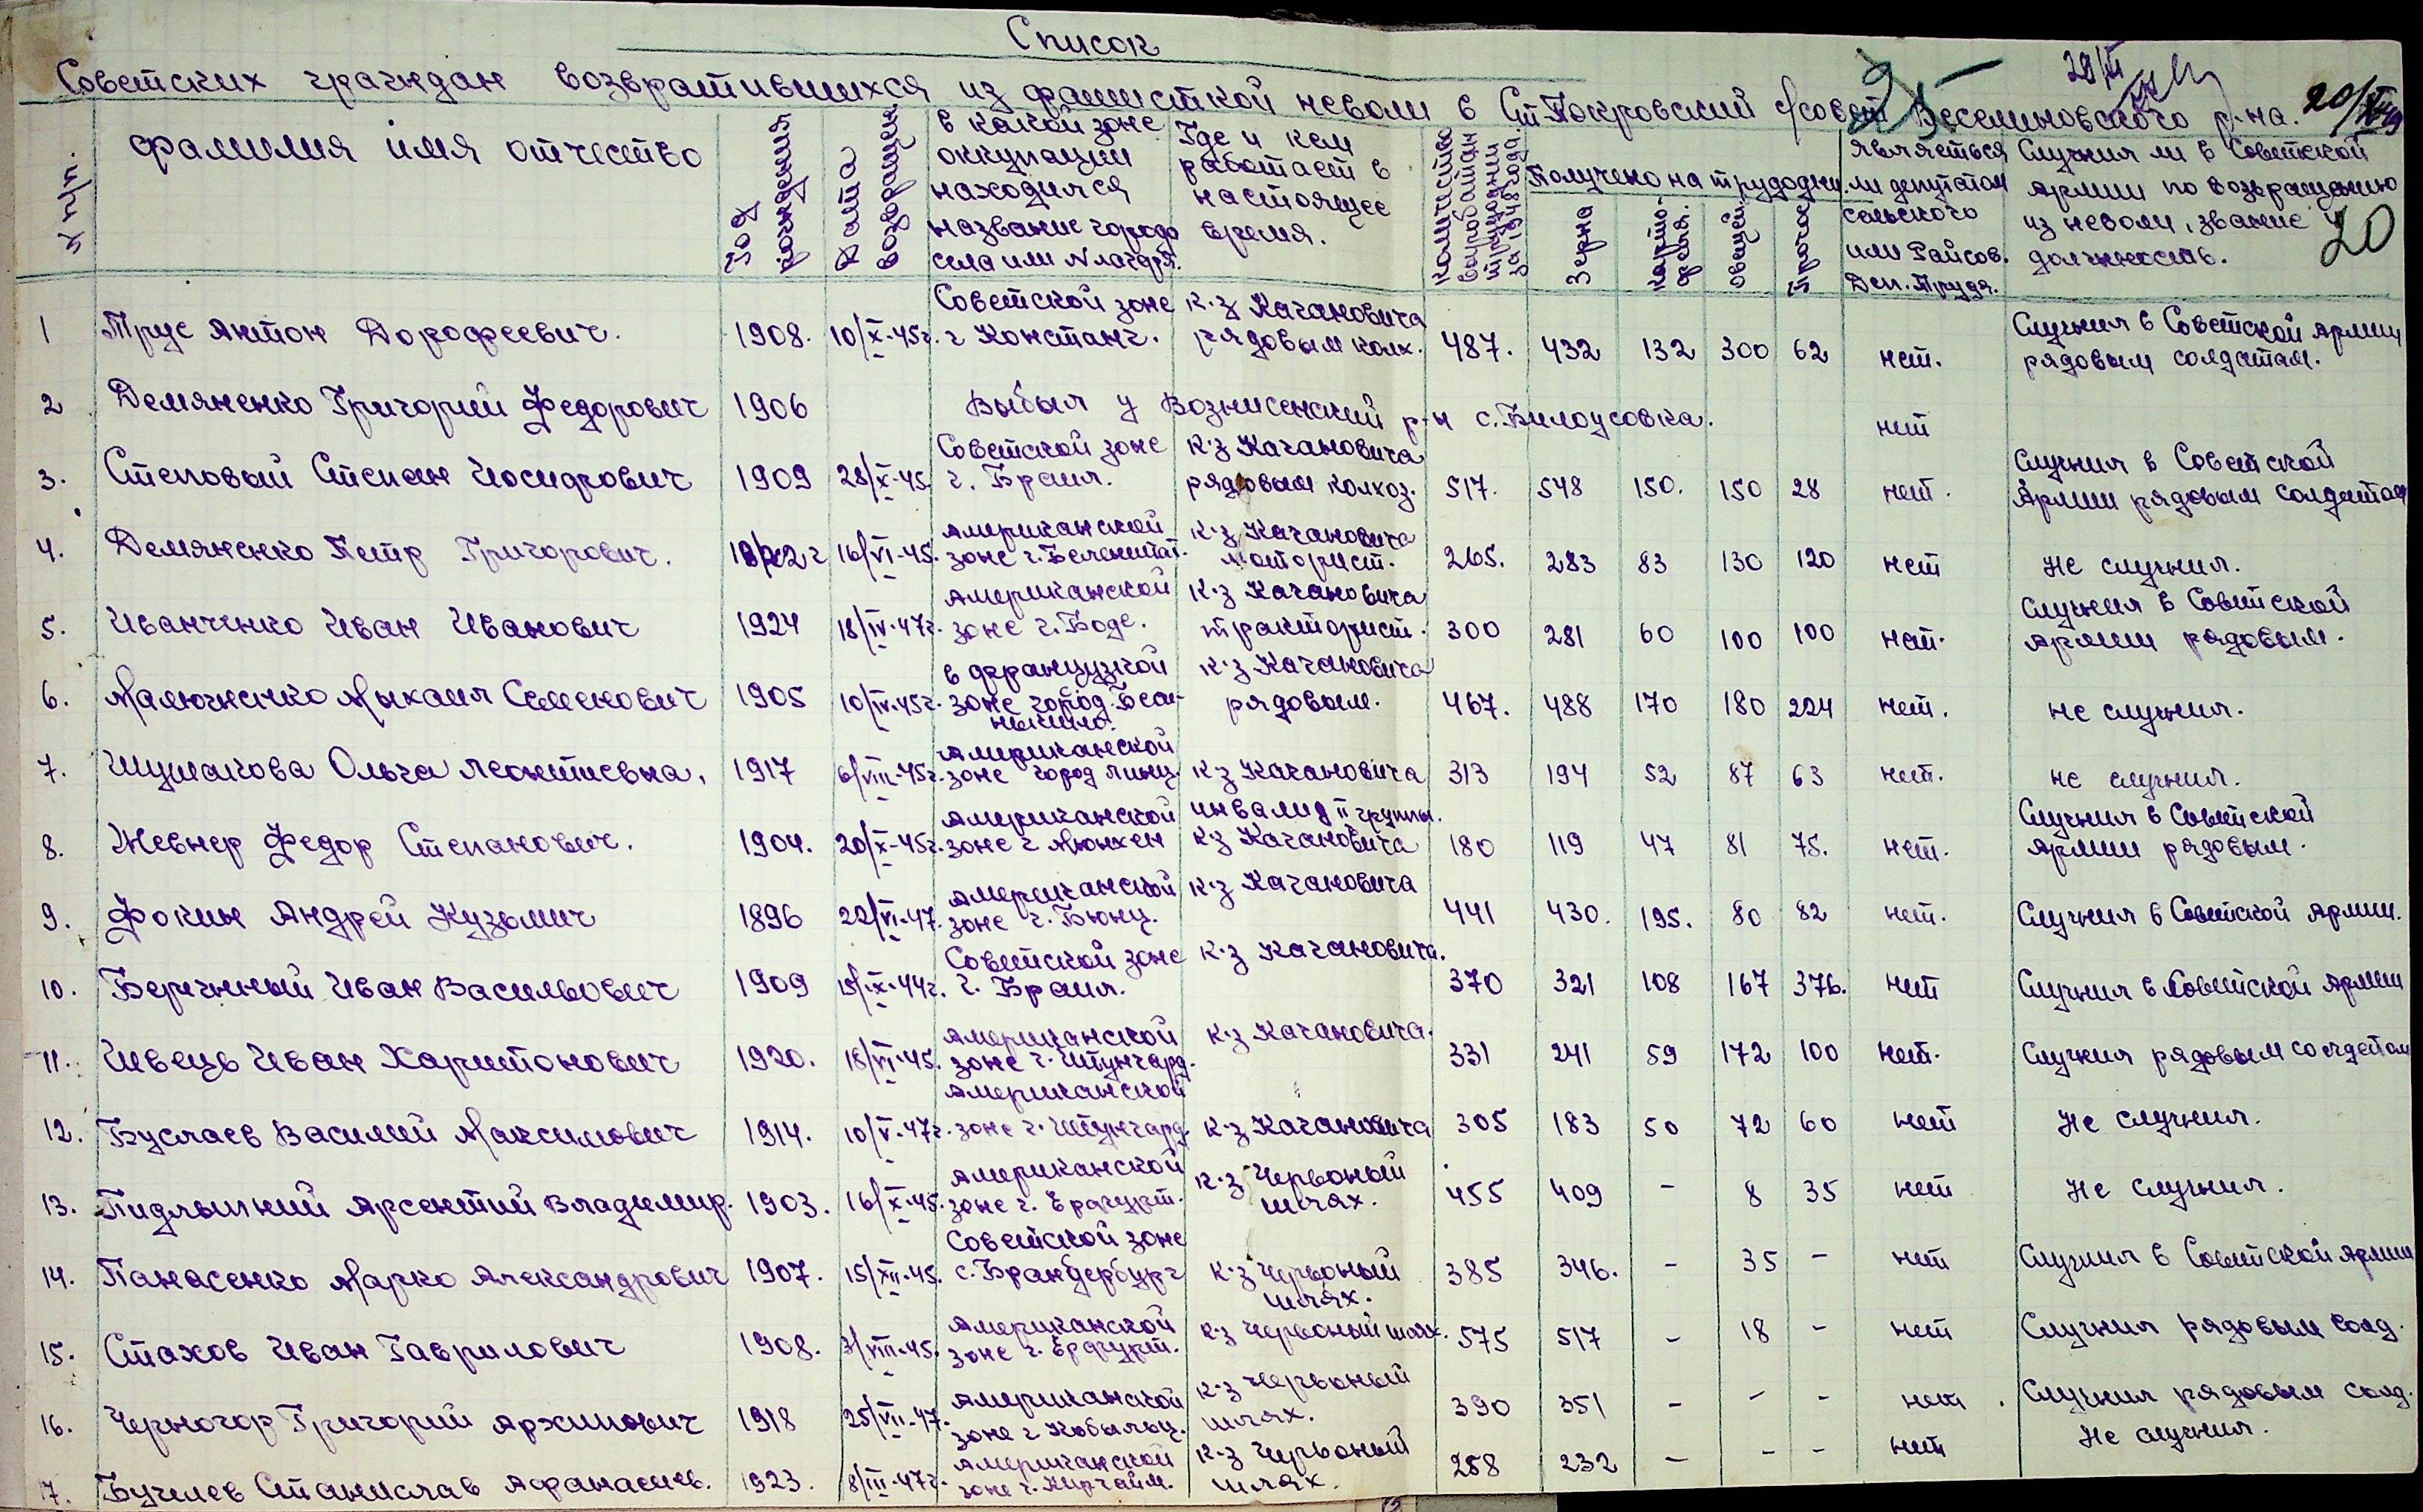 Список
Советских граждан возвратившихся из фашисткой неволи в Ст-Покровский с/совет Веселиновского р-на.
20
№ п/п.
фамилия имя отчество
Год рождения
Дата возвращен.
в какой зоне оккупации находился название города села или № лагеря.
Где и кем работает в настоящее время.
количество выработан трудодней за 1948 года.
Получено на трудодни.
Зерна
карто-феля.
овощей
Прочее
является ли депутатом сельского или Райсов. Деп. Труда.
Служил ли в Советской армии по возвращению из неволи, звание и должность.
1 Трус Антон Дорофеевич. 1908. 10/X-45г. Советской зоне г Констанг. к-з Кагановича рядовым колх. 487. 432 132 300 62 нет. Служил в Советской армии рядовым солдатам.
2 Демяненко Григорий Федорович 1906 Выбыл у Вознисенский р-н с. Билоусовка. нет
3. Степовый Степан Иосидрович 1909 28/X-45. Советской зоне г. Браил. к-з Кагановича рядовым колхоз. 517. 548 150. 150 28 нет. Служил в Советской Армии рядовым солдатом
4. Демяненко Петр Григорович. 16/VI-45. американской зоне г. к-з Кагановича моторист. 265. 283 83 130 120 нет Не служил.
5. Иванченко Иван Иванович 1924 18/IV-47г. американской зоне г. Боде. к-з Кагановича тракторист. 300 281 60 100 100 нет. Служил в Советской армии рядовым.
6. Малюженко Мыхаил Семенович 1905 10/IV-45г. в французкой зоне город к-з Кагановича рядовым. 467. 488 170 180 224 нет. не служил.
7. Шумакова Ольга Леонтиевна. 1917 6/VIII-45г. американской зоне город Линц. к-з Кагановича 313 194 52 87 63 нет. не служил.
8. Жевнер Федор Степанович. 1904. 20/X-45г. американской зоне г Мюнхен инвалид II группы. к-з Кагановича 180 119 47 81 75. нет. Служил в Советской армии рядовым.
9. Фокин Андрей Кузьмич 1896 22/VI-47. американской зоне г. Бюнц. к-з Кагановича 441 430. 195. 80 82 нет. Служил в Советской армии.
10. Бережный Иван Васильович 1909 15/X-44г. Советской зоне г. Браил. к-з Кагановича. 370 321 108 167 376. нет Служил в Советской армии
11. Швець Иван Харитонович 1920. 16/VI-45. американской зоне г. Штунгард. к-з Кагановича. 331 241 59 172 100 нет. Служил рядовым солдатом
12. Буслаев Василий Максимович 1914. 10/V-47г. американской зоне г. Штунгард. к-з Кагановича 305 183 50 72 60 нет Не служил.
13. Пидлыжний Арсентий Владимир. 1903. 16/X-45. американской зоне г. Ерагурт. к-з Червоный шлях. 455 409 - 8 35 нет Не служил.
14. Панасенко Марко Александрович 1907. 15/XII-45. Советской зоне с. Брандербург к-з Червоный шлях. 385 346. - 35 - нет Служил в Советской армии
15. Стахов Иван Гаврилович 1908. 3/VIII-45. американской зоне г. Ерагурт. к-з Червоный шлях. 575 517 - 18 - нет Служил рядовым солд.
16. Черногор Григорий Архипович 1918 25/VII-47. американской зоне г Кобыльц. к-з Червоный шлях. 390 351 - - - нет. Служил рядовым солд.
17. Бугиев Станислав Афанасиев. 1923. 8/III-47г. американской зоне г. Киргайм. к-з Червоный шлях. 258 232 - - - нет Не служил.